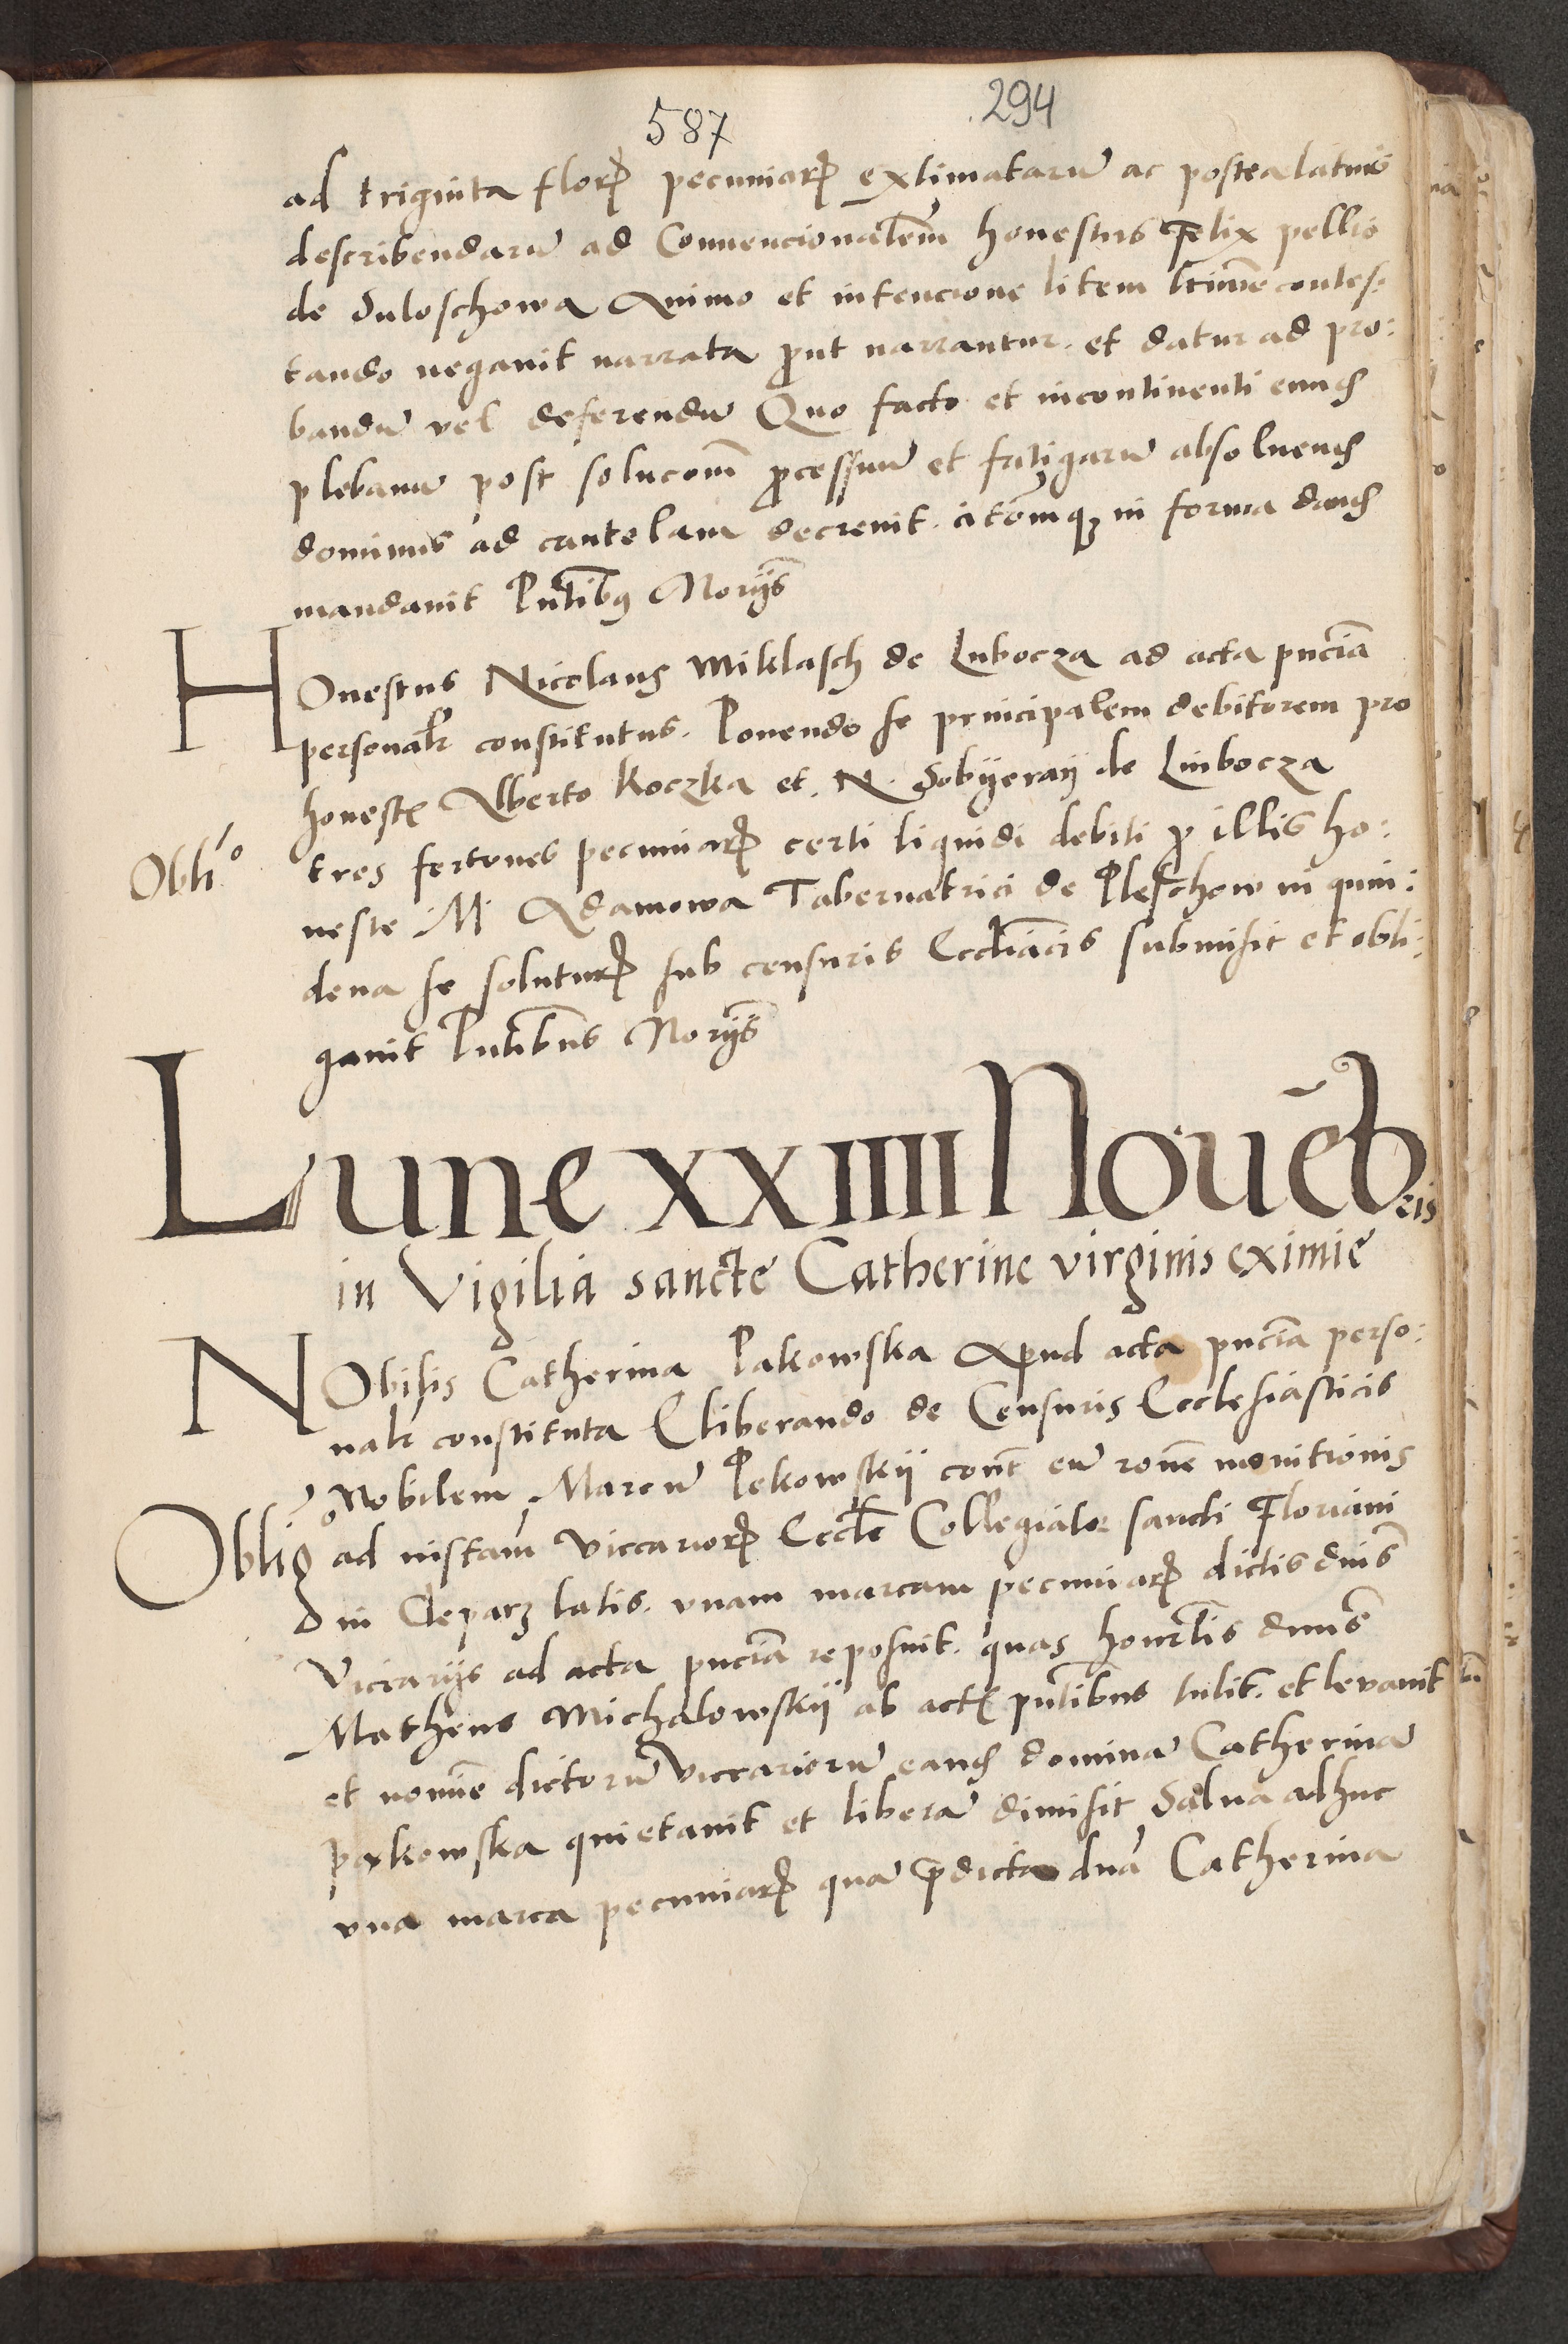 587 294
ad triginta floꝝ pecuniaꝝ extimatarū ac postea latius
describendarū ad Conuencionalem̄ honestus Felix pellio
de Suloschowa Animo et intencione litem ltimē contes:
tando negauit narrata ꝓut narrantur. et datur ad pro:
bandū vel deferendū Quo facto et incontinenti eund
plebanū post solucom̄ ꝓcessuū et fatigarū absoluend
dominus ad cautelam decreuit. citōmqꝫ in forma dand
mandauit Pntibꝫ Norijs
HOnestus Nicolaus Miklasch de Lubocza ad acta pncia
personalr constitutus. Ponendo se principalem debitorem pro
honestꝭ Alberto Koczka et. N. Sobyeraij de Luibocza
Oblio
tres fertones pecuniaꝝ certi liquidi debiti ꝓ illis ho:
neste M Adamowa Tabernatrici de Pleschow in quin:
dena se soluturꝝ sub censuris Eccliacis submisit et obli:
gauit Pntibus Norijs
Lune xxiiii Nouēbris
in Vigilia sancte Catherine virginis eximie
NObilis Catherina Pakowska Apud acta pncia perso:
nalr constituta Eliberando de Censuris Ecclesiasticis
Nobilem Marcū Pekowskij cont eū ronē monitionis
Oblig
ad instam Viccarioꝝ Eccle Collegiate sancti Floriani
in Cleparz latis. vnam marcam pecuniaꝝ dictis dnis
Viccarijs ad acta pncia reposuit. quas honrlis dnus
Matheus Michalowskij ab actꝭ pntibus tulit. et leuauit
et nomīe dictorū Viccariorū eand dominā Catherinā
pakowska quietauit et liberā dimisit Salua adhuc
vna marca pecuniaꝝ quā p̄dicta dna Catherina